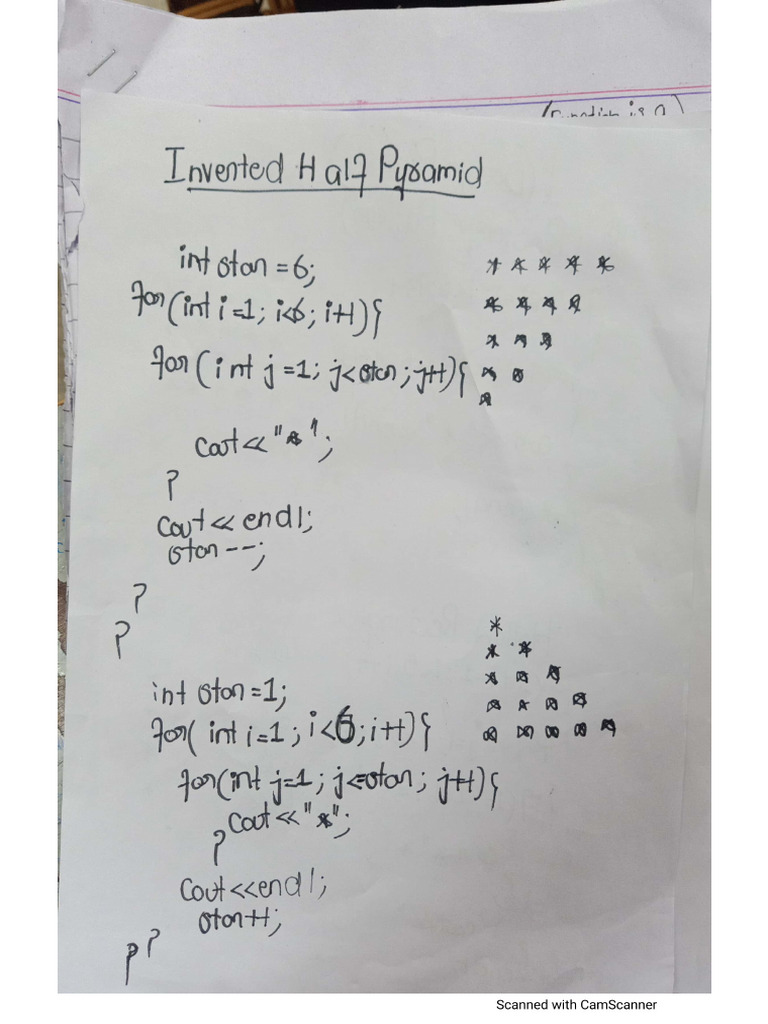 Inverted Half Pyramid
int star = 6;
* * * * *
for(int i=1; i<6; i++){
* * * *
for(int j=1; j<star; j++){
* * *
* *
*
cout<<"*";
}
cout<<endl;
star--;
}
}
*
* *
int star=1;
* * *
for(int i=1; i<6; i++){
* * * *
* * * * *
for(int j=1; j<=star; j++){
cout<<"*";
}
cout<<endl;
star++;
}
}
Scanned with CamScanner